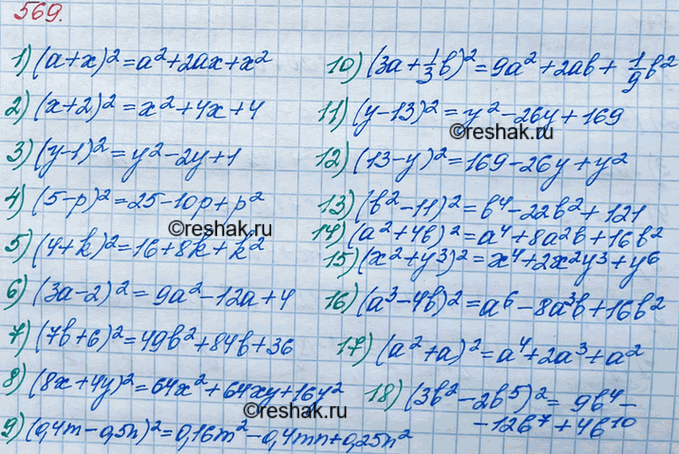 569.
1) (a+x)² = a²+2ax+x²
2) (x+2)² = x²+4x+4
3) (y-1)² = y²-2y+1
4) (5-p)² = 25-10p+p²
5) (4+k)² = 16+8k+k²
6) (3a-2)² = 9a²-12a+4
7) (7b+6)² = 49b²+84b+36
8) (8x+4y)² = 64x²+64xy+16y²
9) (0,4m-0,5n)² = 0,16m²-0,4mn+0,25n²
10) (3a+1/3b)² = 9a²+2ab+1/9b²
11) (y-13)² = y²-26y+169
12) (13-y)² = 169-26y+y²
13) (b²-11)² = b⁴-22b²+121
14) (a²+4b)² = a⁴+8a²b+16b²
15) (x²+y³)² = x⁴+2x²y³+y⁶
16) (a³-4b)² = a⁶-8a³b+16b²
17) (a²+a)² = a⁴+2a³+a²
18) (3b²-2b⁵)² = 9b⁴-
-12b⁷+4b¹⁰
©reshak.ru
©reshak.ru
©reshak.ru